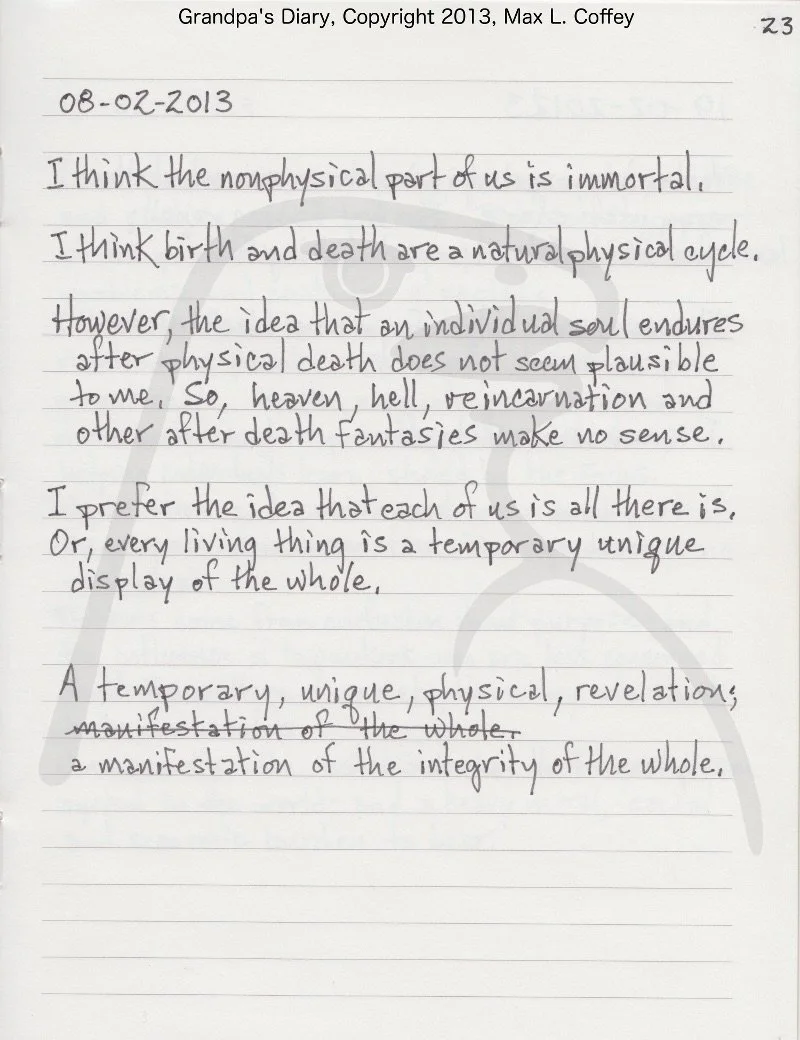 Grandpa's Diary, Copyright 2013, Max L. Coffey
23
08-02-2013
I think the nonphysical part of us is immortal.
I think birth and death are a natural physical cycle.
However, the idea that an individual soul endures
after physical death does not seem plausible
to me. So, heaven, hell, reincarnation and
other after death fantasies make no sense.
I prefer the idea that each of us is all there is.
Or, every living thing is a temporary unique
display of the whole.
A temporary, unique, physical, revelation;
manifestation of the whole.
a manifestation of the integrity of the whole.